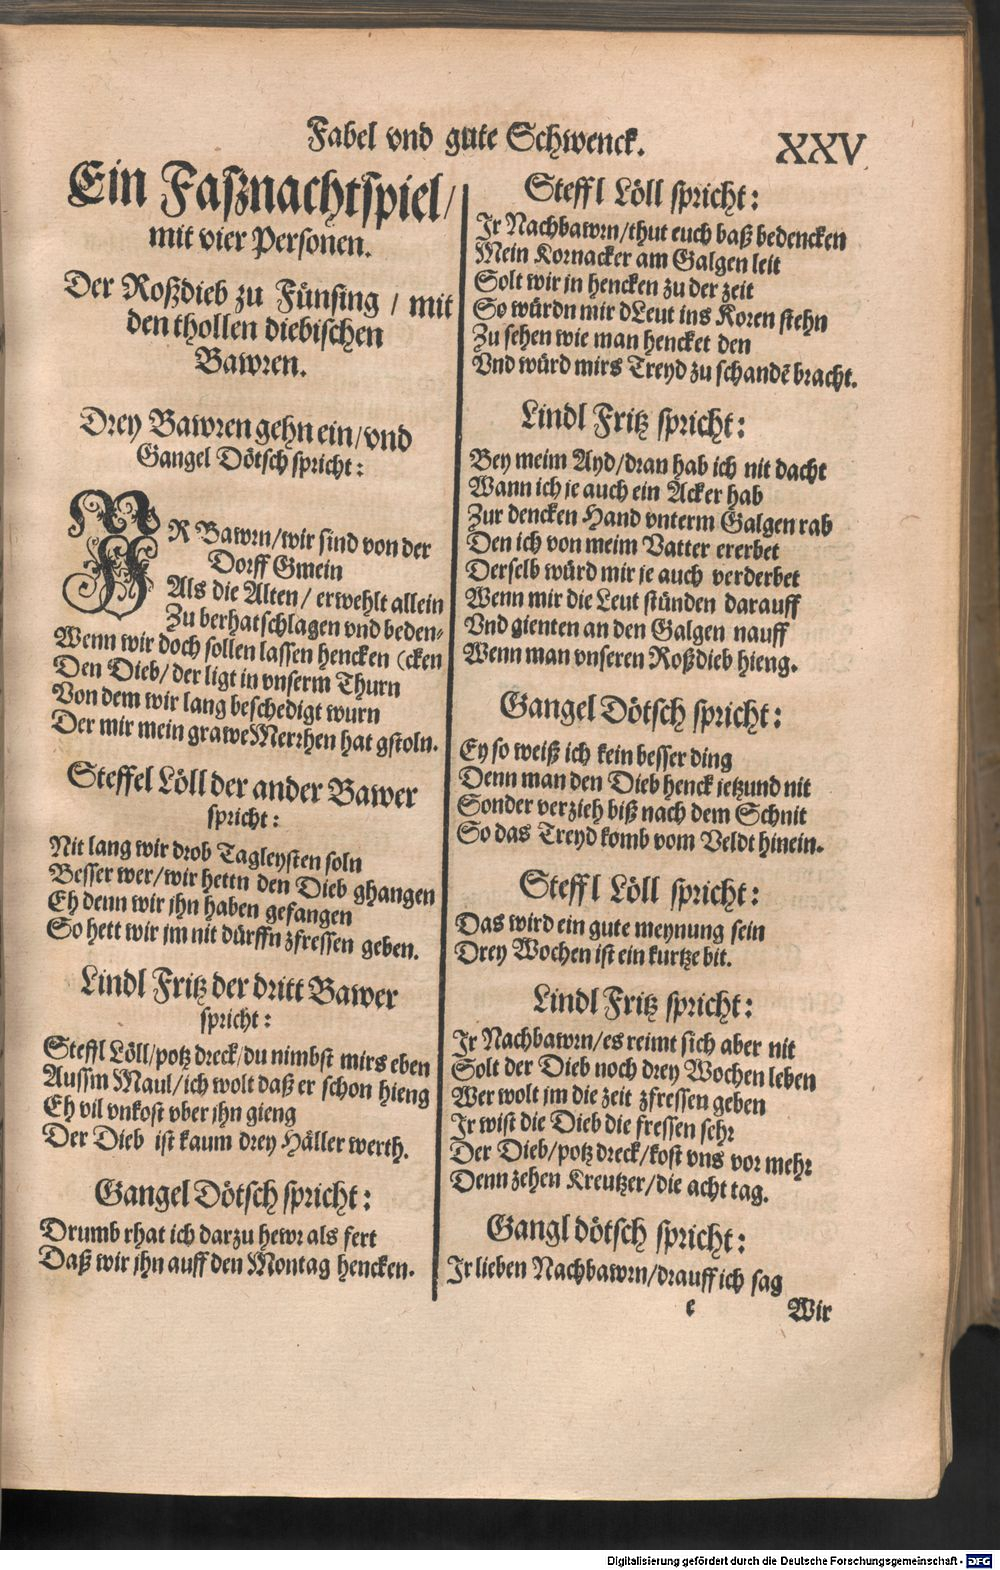 Fabel vnd gute Schwenck. XXV
Ein Faßnachtspiel/
mit vier Personen.
Der Roßdieb zu Fünsing / mit
den thollen diebischen
Bawren.
Drey Bawren gehn ein/vnd
Gangel Dötsch spricht:
WJR Bawrn/wir sind von der
Dorff Gmein
Als die Alten/ erwehlt allein
Zu berhatschlagen vnd beden-
Wenn wir doch sollen lassen hencken (cken
Den Dieb/ der ligt in vnserm Thurn
Von dem wir lang beschedigt wurn
Der mir mein grawe Merrhen hat gstoln.
Steffel Löll der ander Bawer
spricht:
Nit lang wir drob Tagleysten soln
Besser wer/wir hettn den Dieb ghangen
Eh denn wir jhn haben gefangen
So hett wir jm nit dürffn zfressen geben.
Lindl Fritz der dritt Bawer
spricht:
Steffl Löll/potz dreck/du nimbst mirs eben
Aussm Maul/ich wolt daß er schon hieng
Eh vil vnkost vber jhn gieng
Der Dieb ist kaum drey Häller werth.
Gangel Dötsch spricht:
Drumb rhat ich darzu hewr als fert
Daß wir jhn auff den Montag hencken.
Steffl Löll spricht:
Jr Nachbawrn/thut euch baß bedencken
Mein Kornacker am Galgen leit
Solt wir jn hencken zu der zeit
So würdn mir dLeut ins Koren stehn
Zu sehen wie man hencket den
Vnd würd mirs Treyd zu schandẽ bracht.
Lindl Fritz spricht:
Bey meim Ayd/dran hab ich nit dacht
Wann ich je auch ein Acker hab
Zur dencken Hand vnterm Galgen rab
Den ich von meim Vatter ererbet
Derselb würd mir je auch verderbet
Wenn mir die Leut stünden darauff
Vnd gienten an den Galgen nauff
Wenn man vnseren Roßdieb hieng.
Gangel Dötsch spricht:
Ey so weiß ich kein besser ding
Denn man den Dieb henck jetzund nit
Sonder verzieh biß nach dem Schnit
So das Treyd komb vom Veldt hinein.
Steffl Löll spricht:
Das wird ein gute meynung sein
Drey Wochen ist ein kurtze bit.
Lindl Fritz spricht:
Jr Nachbawrn/es reimt sich aber nit
Solt der Dieb noch drey Wochen leben
Wer wolt jm die zeit zfressen geben
Jr wist die Dieb die fressen sehr
Der Dieb/potz dreck/kost vns vor mehr
Denn zehen Kreutzer/die acht tag.
Gangl dötsch spricht:
Jr lieben Nachbawrn/drauff ich sag
e Wir
Digitalisierung gefördert durch die Deutsche Forschungsgemeinschaft - DFG